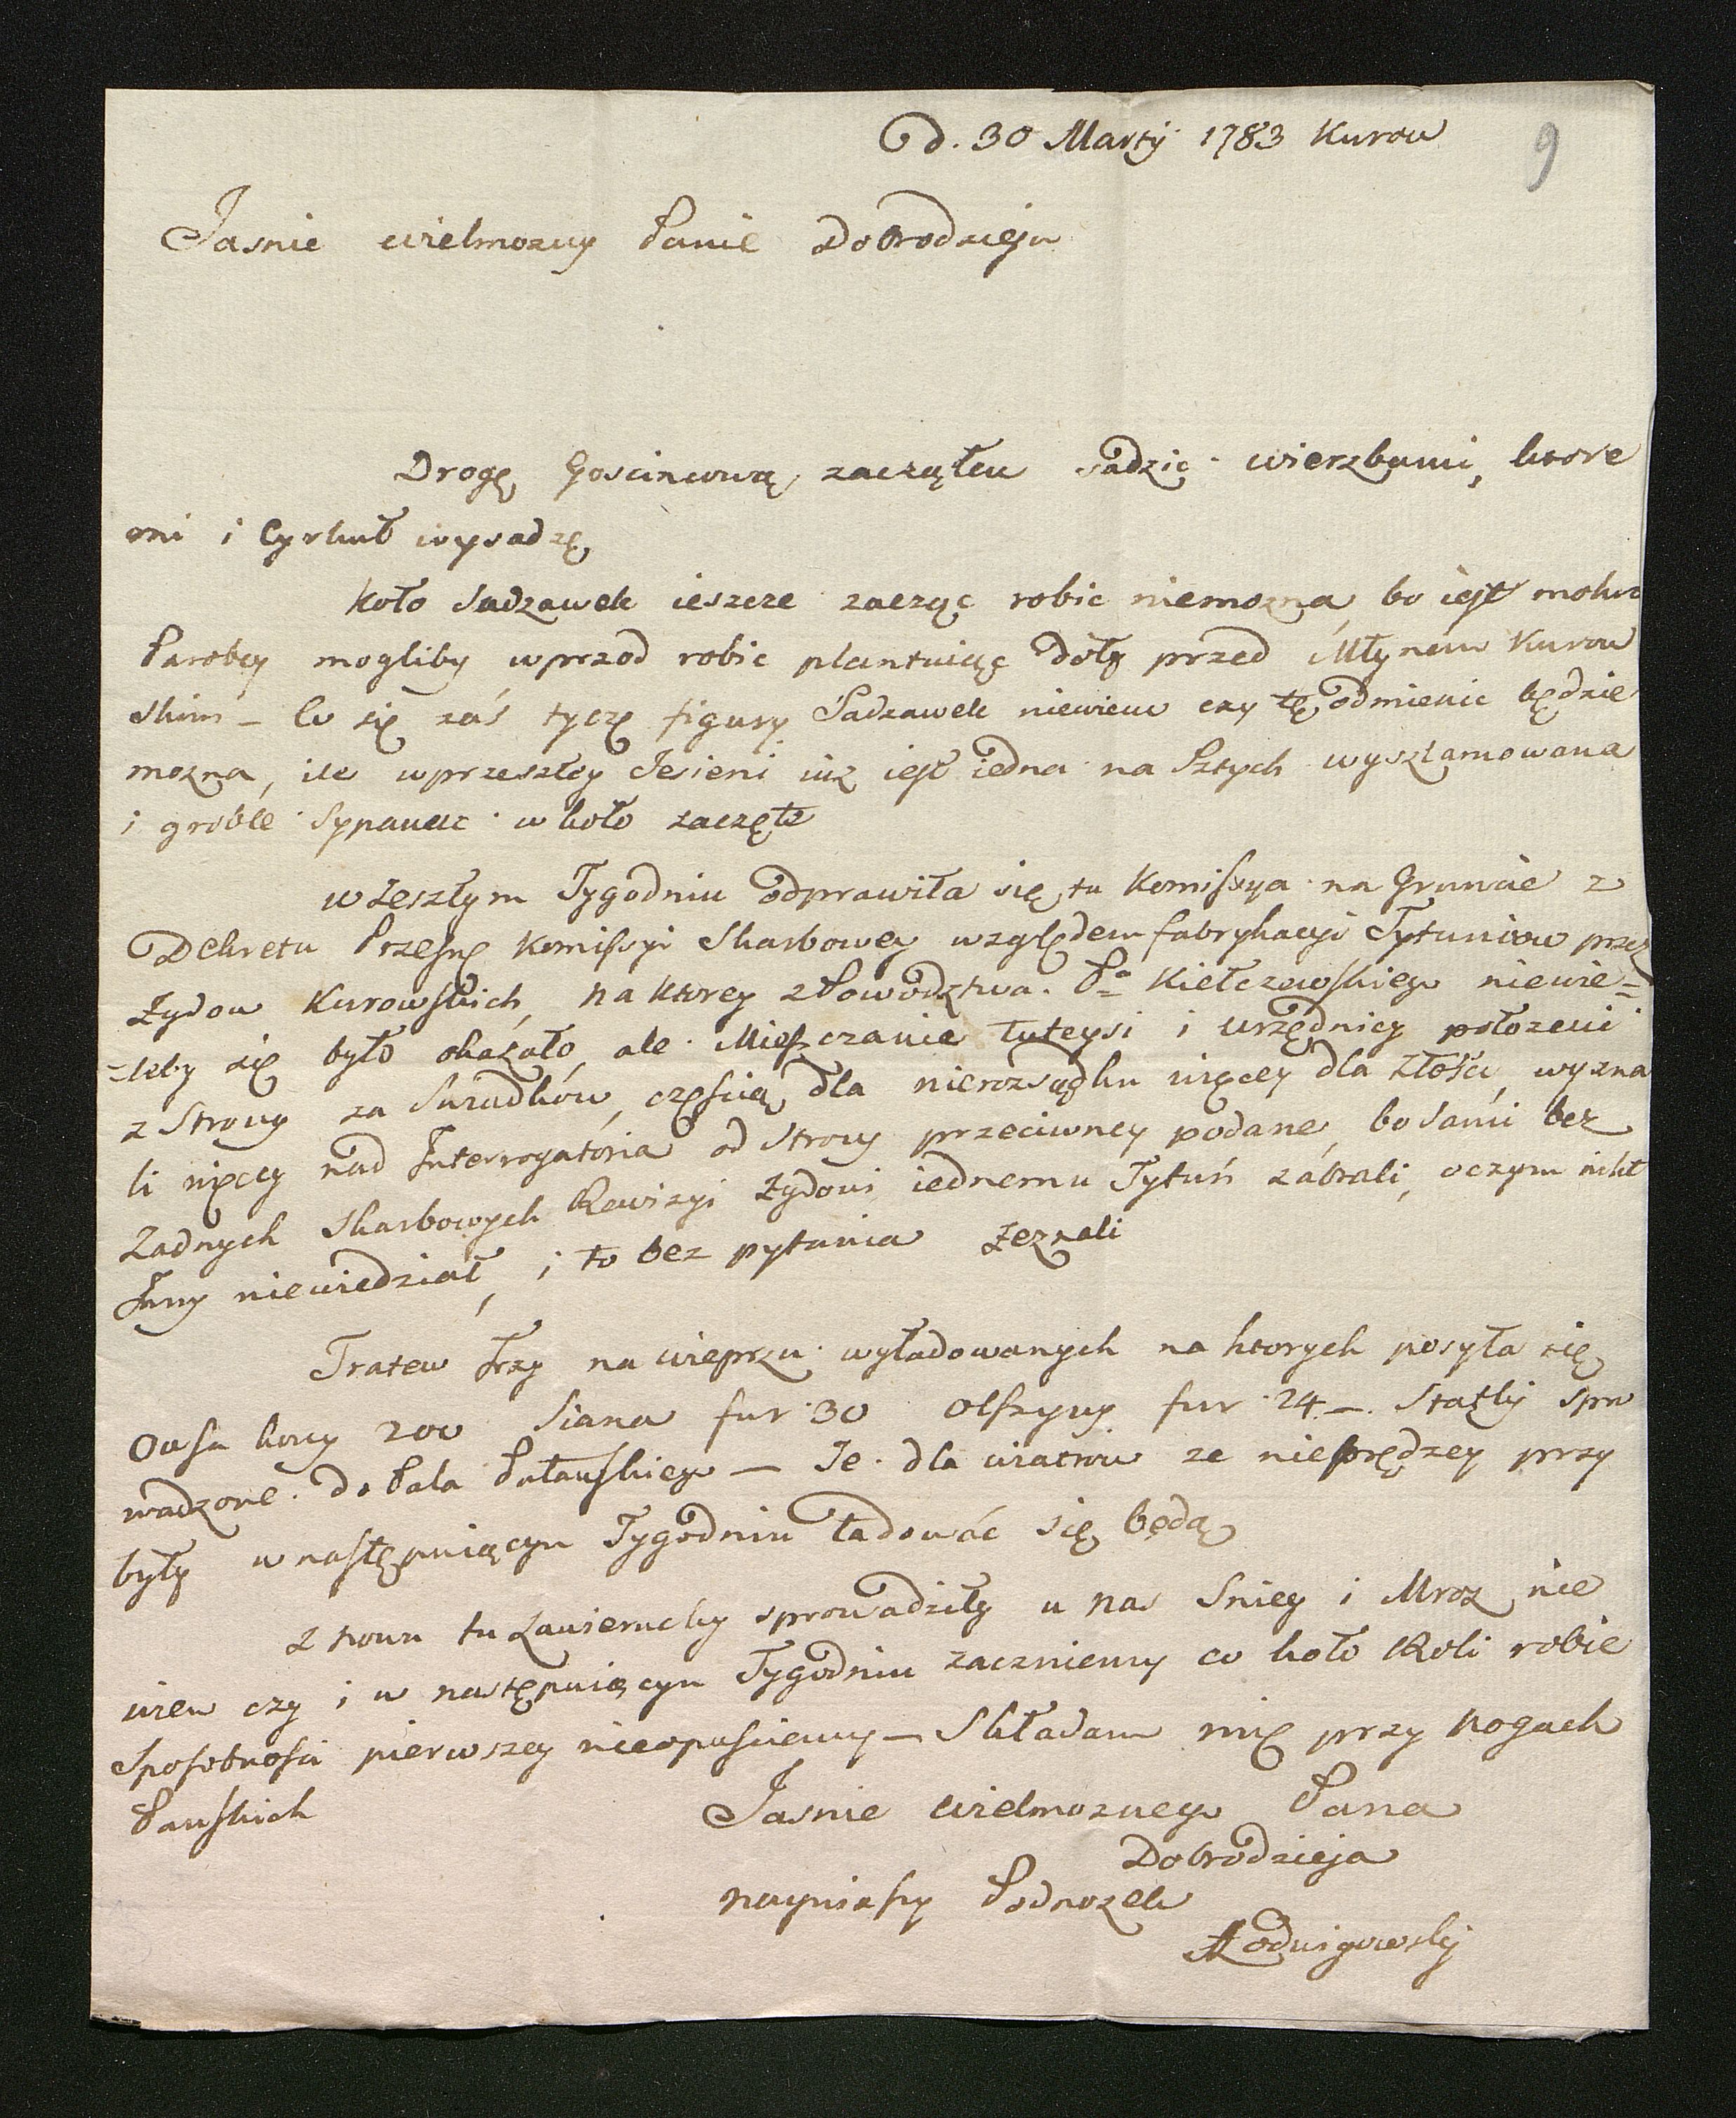 d. 30 Martÿ 1783 Kurow
9
Jasnie wielmozny Panie Dobrodzieju
Drogę Goscincową zacząłem sadzic wierzbami, ktore
mi i Cyrkuł wysadzę
Koło Sadzawek ieszcze zacząc robic niemozna, bo iest mokro
Parobcy mogliby wprzod robic plantuiąc doły przed Młynem Kurow
skim – Co się zaś tycze figury Sadzawek niewiem czy tę odmienic będzie
mozna, ile w przeszłey Jesieni iuz iest iedna na Sztych wyszlamowana
i groble Sypanac w koło zaczęte
w Zeszłym Tygodniu odprawiła się tu Komissya na Gruncie z
Dekretu Przesnę Komissyi Skarbowey względem fabrykacyi Tytuniow przez
Zydow Kurowskich, na ktorey z Powodztwa Pa Kiełczewskiego niewie=
=leby się było okazało, ale Mieszczanie tuteysi i urzędnicy połozeni
z Strony za Swiadków, częścią dla nierozsądku więcey dla złości, wyzna
li więcey nad Interrogatoria od Strony przeciwney podane, bo Sami bez
Zadnych Skarbowych Rewizyi Zydowi iednemu Tytuń zabrali, o czym nikt
Inny niewiedział, i to bez pytania Zeznali
Tratew trzy na wieprzu wyładowanych na ktorych posyła się
Owsa korcy 200 Siana fur 30 Olszyny fur 24 –. Statki spro
wadzone do Pala Pulawskiego – Te dla wiatrow ze nieprędzey przy
były w następuiącym Tygodniu ładowác się będą
Znowu tu Zawieruchy sprowadziły u nas Snieg i Mroz, nie
wiem czy i w następuiącym Tygodniu zaczniemy co koło Roli robic
Sposobności pierwszey nieopuściemy – Składam mię przy nogach
Panskich
Jasnie wielmoznego Pana
Dobrodzieja
nayniższy Podnozek